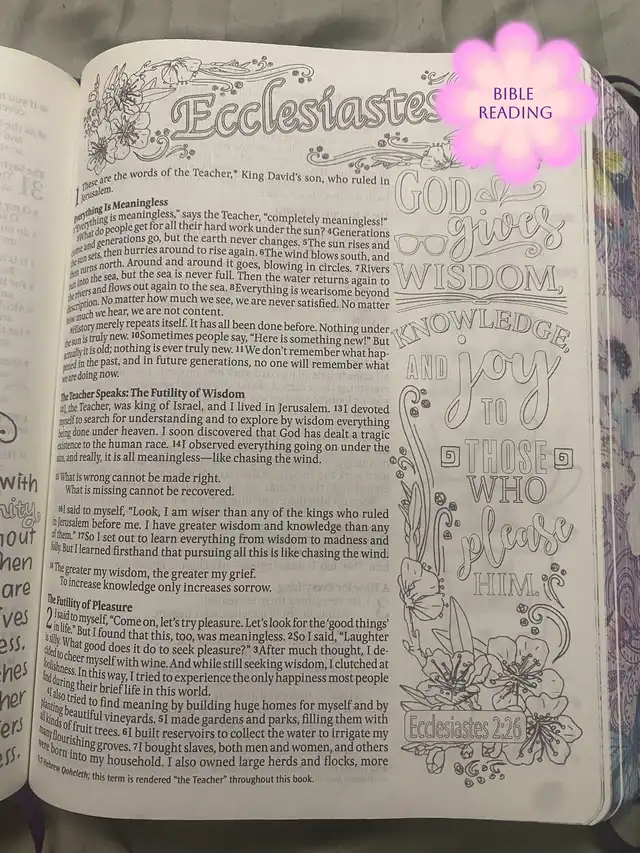 BIBLE
READING
Ecclesiastes
1 These are the words of the Teacher,* King David's son, who ruled in
Jerusalem.
Everything Is Meaningless
"Everything is meaningless," says the Teacher, "completely meaningless!"
What do people get for all their hard work under the sun? 4Generations
come and generations go, but the earth never changes. 5The sun rises and
the sun sets, then hurries around to rise again. 6The wind blows south, and
then turns north. Around and around it goes, blowing in circles. 7Rivers
run into the sea, but the sea is never full. Then the water returns again to
the rivers and flows out again to the sea. 8Everything is wearisome beyond
description. No matter how much we see, we are never satisfied. No matter
how much we hear, we are not content.
9History merely repeats itself. It has all been done before. Nothing under
the sun is truly new. 10Sometimes people say, "Here is something new!" But
actually it is old; nothing is ever truly new. 11We don't remember what hap-
pened in the past, and in future generations, no one will remember what
we are doing now.
The Teacher Speaks: The Futility of Wisdom
the Teacher, was king of Israel, and I lived in Jerusalem. 13I devoted
myself to search for understanding and to explore by wisdom everything
being done under heaven. I soon discovered that God has dealt a tragic
existence to the human race. 14I observed everything going on under the
sun, and really, it is all meaningless—like chasing the wind.
15 What is wrong cannot be made right.
What is missing cannot be recovered.
16I said to myself, "Look, I am wiser than any of the kings who ruled
in Jerusalem before me. I have greater wisdom and knowledge than any
of them." 17So I set out to learn everything from wisdom to madness and
folly. But I learned firsthand that pursuing all this is like chasing the wind.
18 The greater my wisdom, the greater my grief.
To increase knowledge only increases sorrow.
The Futility of Pleasure
2 I said to myself, "Come on, let's try pleasure. Let's look for the 'good things'
in life." But I found that this, too, was meaningless. 2So I said, "Laughter
is silly. What good does it do to seek pleasure?" 3After much thought, I de-
cided to cheer myself with wine. And while still seeking wisdom, I clutched at
foolishness. In this way, I tried to experience the only happiness most people
find during their brief life in this world.
4I also tried to find meaning by building huge homes for myself and by
planting beautiful vineyards. 5I made gardens and parks, filling them with
all kinds of fruit trees. 6I built reservoirs to collect the water to irrigate my
many flourishing groves. 7I bought slaves, both men and women, and others
were born into my household. I also owned large herds and flocks, more
Hebrew Qoheleth; this term is rendered "the Teacher" throughout this book.
GOD
gives
WISDOM,
KNOWLEDGE,
AND joy
TO
THOSE
WHO
please
HIM.
Ecclesiastes 2:26
31
with
are